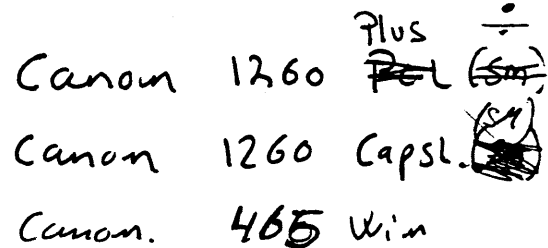 Plus ÷
Canon 1260 PCL (SM)
Canon 1260 Capsl. (SM)
Canon. 465 Win